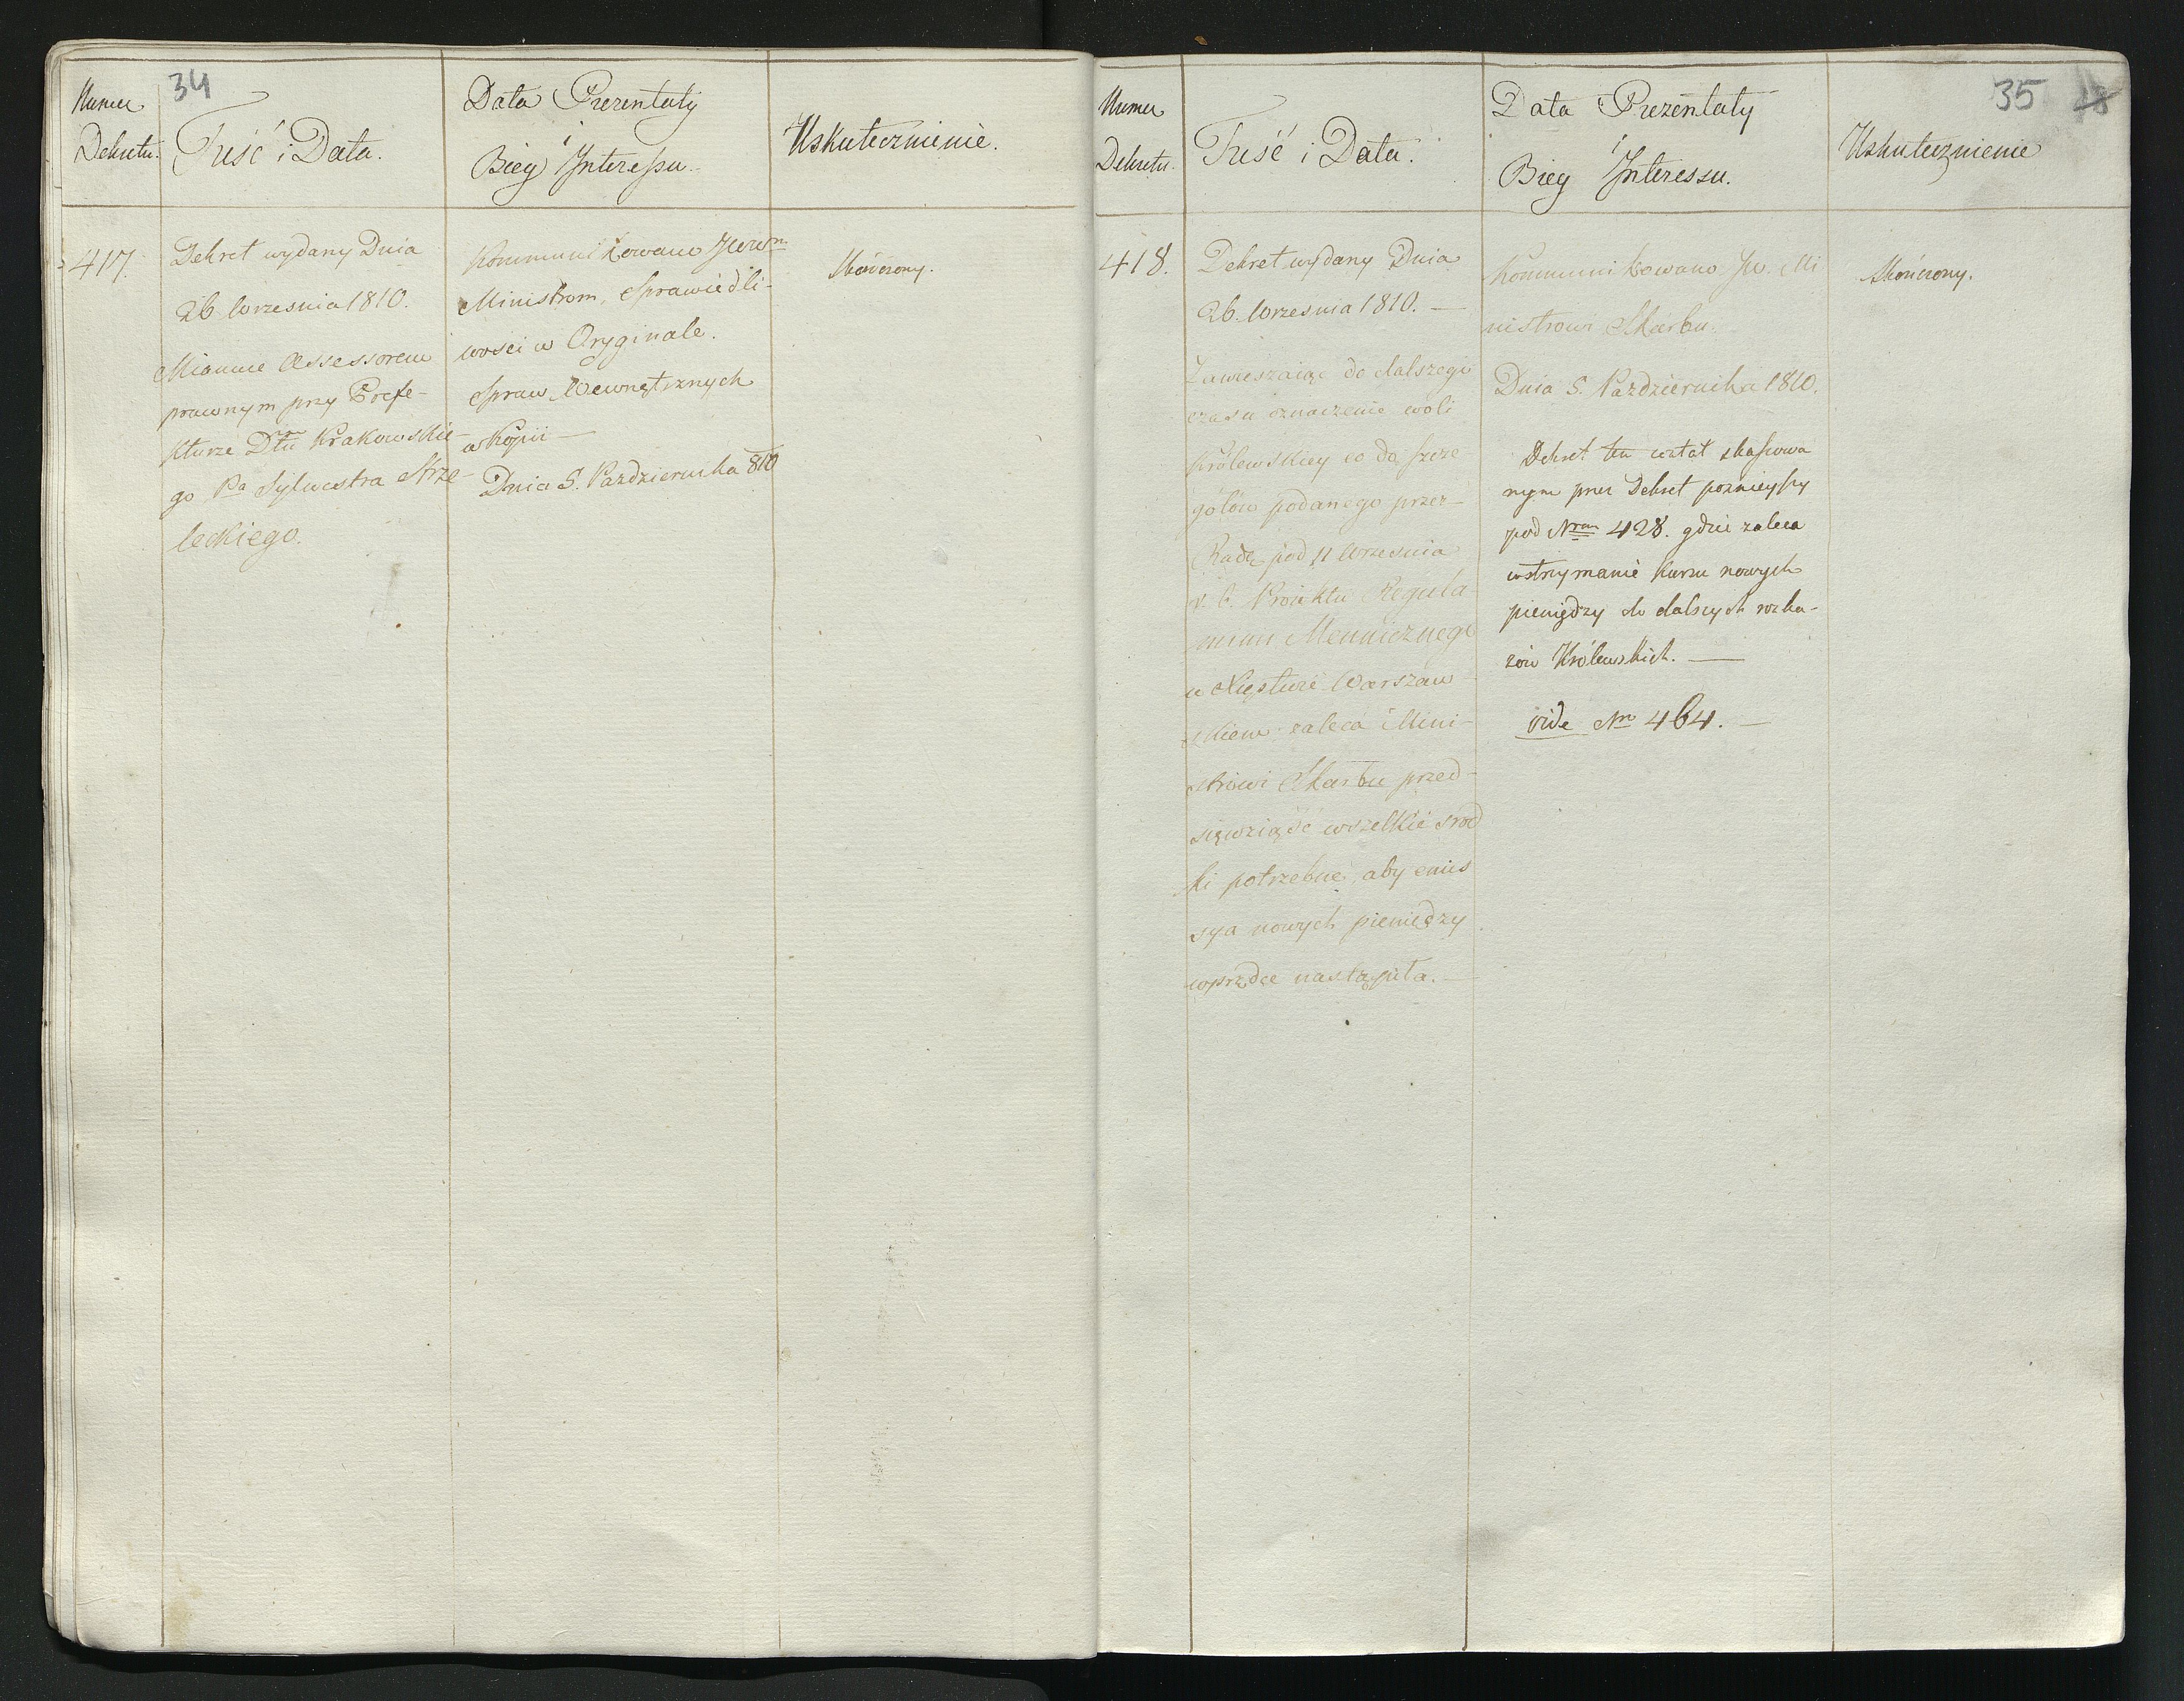 34
Numer
Dekretu.
Treść i Data.
Data Prezentaty
i
Bieg Interessu.
Uskutecznienie.
417.
Dekret wydany Dnia
26 Września 1810.
Mianuie Assessorem
prawnym przy Prefe-
kturze Dttu Krakowskie-
go Pa Sylwestra Strze-
leckiego.
Kommunikowano
Ministrom, Sprawiedli-
wości w Oryginale.
Spraw Wewnętrznych
w Kopii —
Dnia 5. Października 810
Skończony.
35 18
Numer
Dekretu.
Treść i Data.
Data Prezentaty
i
Bieg Interessu.
Uskutecznienie
418.
Dekret wydany Dnia
26. Września 1810. —
Zawieszaiąc do dalszego
czasu oznaczenie woli
Królewskiey co do szcze
gółow podanego przez
Radę pod 11 Września
r. b. Proiektu Regula-
minu Mennicznego
w Xięstwie Warszaw-
skiem; zaleca Mini-
strowi Skarbu przed-
sięwziąść wszelkie srod
ki potrzebne, aby emis
sya nowych pieniędzy
wprędce nastąpiła. —
Kommunikowano Jw. Mi
nistrowi Skarbu.
Dnia 5. Października 1810.
Dekret ten został skassowa
nym przez Dekret poznieyszy
pod Nrem 428. gdzie zaleca
wstrzymanie kursu nowych
pieniędzy do dalszych rozka-
zów Królewskich. —
vide Nr 464. —
Skończony.